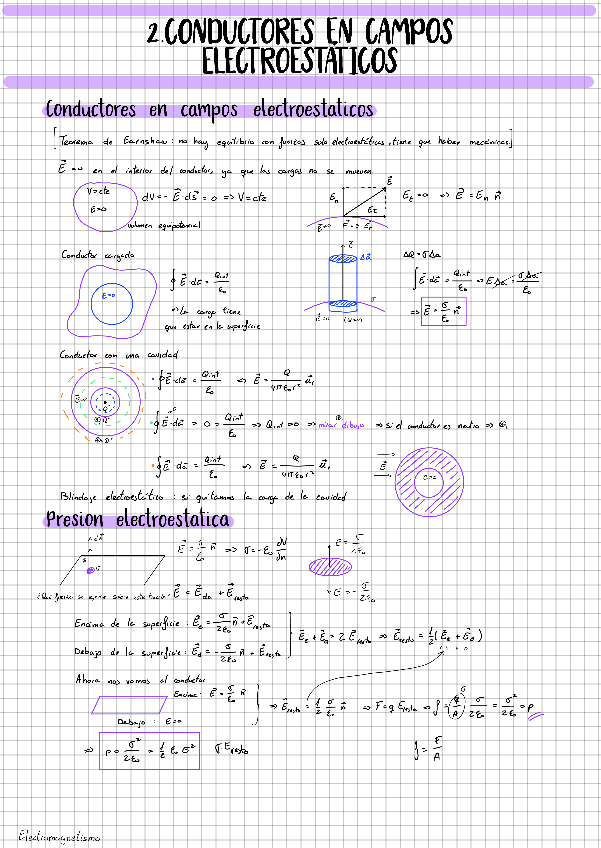 2.CONDUCTORES EN CAMPOS
ELECTROESTATICOS
Conductores en campos electroestaticos
[Teorema de Earnshaw: no hay equilibrio con fuerzas solo electroestáticas, tiene que haber mecánicas]
E⃗=0 en el interior del conductor, ya que las cargas no se mueven
V=cte
E=0
dV=-E⃗·ds⃗=0 => V=cte
volumen equipotencial
Eₙ
E⃗
Eₜ
E⃗=0
Eₜ=0 => E⃗=Eₙ n⃗
Conductor cargado
E=0
∮E⃗·da⃗ = Qint/ε₀
=> La carga tiene
que estar en la superficie
ΔQ
σ
ΔQ=σΔa
∫E⃗·da⃗ = Qint/ε₀ => EΔa = σΔa/ε₀
=> E⃗ = σ/ε₀ n⃗
Conductor con una cavidad
∮E⃗·da⃗ = Qint/ε₀ => E⃗ = Q/4πε₀r² u⃗ᵣ
∮E⃗·da⃗ = 0 = Qint/ε₀ => Qint=0 => mirar dibujo => si el conductor es neutro =>
∮E⃗·da⃗ = Qint/ε₀ => E⃗ = Q/4πε₀r² u⃗ᵣ
E⃗
Blindaje electroestático: si quitamos la carga de la cavidad
Presion electroestatica
E⃗ = σ/ε₀ n⃗ => σ=-ε₀ dV/dn
E = σ/2ε₀
E = -σ/2ε₀
E⃗=E⃗da + E⃗resto
Encima de la superficie: E⃗e = σ/2ε₀ n⃗ + E⃗resto
Debajo de la superficie: E⃗d = -σ/2ε₀ n⃗ + E⃗resto
E⃗e + E⃗d = 2 E⃗resto => E⃗resto = 1/2 (E⃗e + E⃗d)
Ahora nos vamos al conductor
Encima: E⃗ = σ/ε₀ n⃗
Debajo: E=0
=> E⃗resto = 1/2 σ/ε₀ n⃗ => F=q Eresto => f = (q/A) σ/2ε₀ = σ²/2ε₀ = p
σ
=> p = σ²/2ε₀ = 1/2 ε₀ E²
σ Eresto
f = F/A
Electromagnetismo